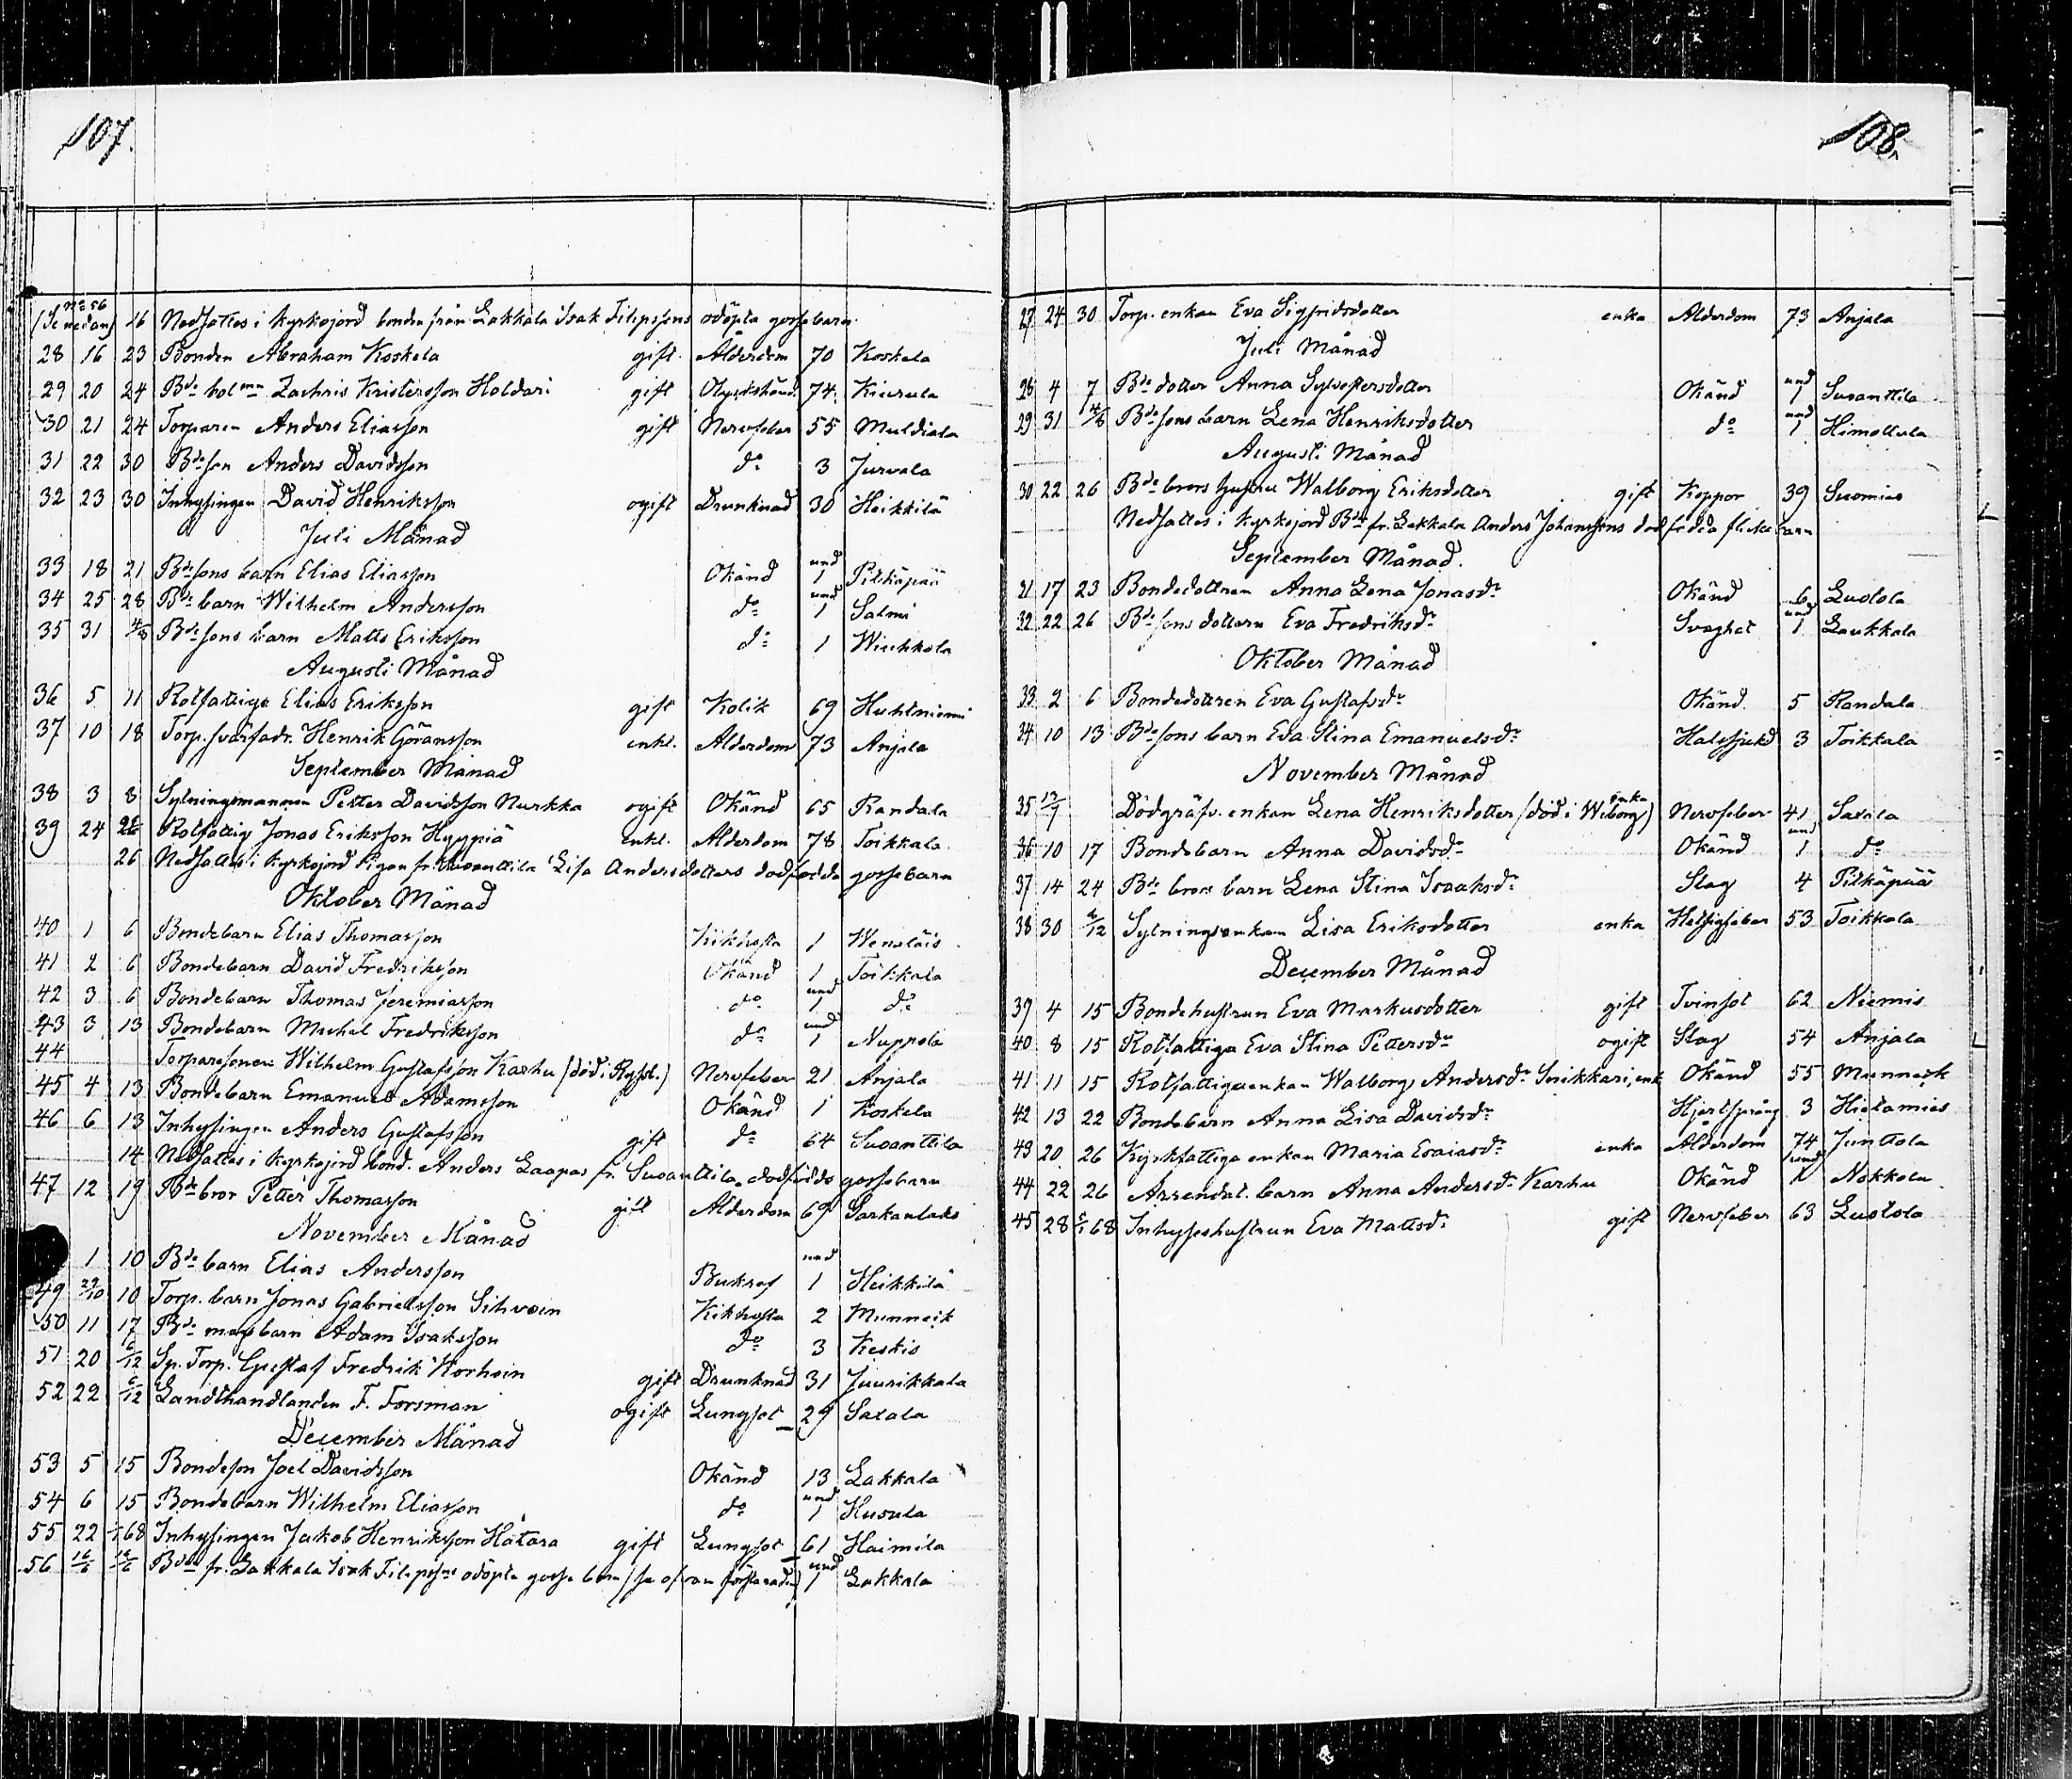 107.
No 56
(Se nedan) 16 Nedsattes i kyrkojord bonden från Lakkala Isak Filipssons odöpta gossebarn.
28 16 23 Bonden Abraham Koskela gift Ålderdom 70 Koskela
29 20 24 Bde bolmn Zachris Kristersson Holdari gift Olyckshänd. 74 Kiurula
30 21 24 Torparen Anders Eliasson gift Nervfeber 55 Muldiala
31 22 30 Bdeson Anders Davidsson do 3 Jurvala
32 23 30 Inhysingen David Henriksson ogift Drunknad 30 Heikkilä
Juli Månad
33 18 21 Bdesons barn Elias Eliasson Okänd und 1 Pitkäpää
34 25 28 Bde barn Wilhelm Andersson do und 1 Salmi
35 31 4/8 Bdesons barn Matts Eriksson do 1 Wiukkola
Augusti Månad
36 5 11 Rotfattige Elias Eriksson gift Kolik 69 Huhtniemi
37 10 18 Torp. svärfadr. Henrik Göransson enkl. Alderdom 73 Anjala
September Månad
38 3 8 Sytningsmannen Petter Davidsson Nurkka ogift Okänd 65 Randala
39 24 26 Rotfattig Jonas Eriksson Hyppiä enkl. Alderdom 78 Toikkala
26 Nedsattes i kyrkojord Pigan fr. Suoanttila Lisa Andersdotters dödfödda gossebarn
Oktober Månad
40 1 6 Bondebarn Elias Thomasson Kikhosta 1 Wenäläis
41 2 6 Bondebarn David Fredriksson Okänd 1 Toikkala
42 3 6 Bondebarn Thomas Jeremiasson do und 1 do
43 3 13 Bondebarn Michel Fredriksson do und 1 Nuppola
44 Torparesonen Wilhelm Gustafsson Karhu (död i Ryssl.) Nervfeber 21 Anjala
45 4 13 Bondebarn Emanuel Adamsson Okänd 1 Koskela
46 6 13 Inhysingen Anders Gustafsson gift do 64 Suoanttila
14 Nedsattes i kyrkojord bond. Anders Laapas fr. Suoanttila dödfödde gossebarn
47 12 19 Bde bror Petter Thomasson gift Alderdom 69 Sarkanlaks
November Månad
1 10 Bde barn Elias Andersson Bukref und 1 Heikkilä
49 29/10 10 Torp. barn Jonas Gabrielsson Sihvoin Kikhosta 2 Munneik
50 11 17 Bde mågs barn Adam Isaksson do 3 Keskis
51 20 6/12 Sp. Torp. Gustaf Fredrik Korhoin gift Drunknad 31 Juurikkala
52 22 6/12 Landthandlanden F. Forsman ogift Lungsot 29 Saxala
December Månad
53 5 15 Bondeson Joel Davidsson Okänd 13 Lakkala
54 6 15 Bondebarn Wilhelm Eliasson do und 1 Husula
55 22 68 Inhysingen Jakob Henriksson Hätära gift Lungsot 61 Haimila
56 16/6 Bden fr. Lakkala Isak Filipssons odöpta gosse barn (se ofvan) und 1 Lakkala
108.
27 24 30 Torp. enkan Eva Sigfridsdotter enka Alderdom 73 Anjala
Juli Månad
28 4 7 Bde dotter Anna Sylvestersdotter Okänd und 1 Suoanttila
29 31 4/8 Bdesons barn Lena Henriksdotter do und 1 Himottula
Augusti Månad
30 22 26 Bde brors hustru Walborg Eriksdotter gift Koppor 39 Suomies
Nedsattes i kyrkojord Bdn fr. Lakkala Anders Johanssons dödfödda flickebarn
September Månad.
31 17 23 Bondedottren Anna Lena Jonasdr Okänd 6 Luotola
32 22 26 Bdesons dottern Eva Fredriksdr Svaghet und 1 Laukkala
Oktober Månad
33 2 6 Bondedottren Eva Gustafsdr Okänd 5 Randala
34 10 13 Bdesons barn Eva Stina Emanuelsdr Halssjukd 3 Toikkala
November Månad
35 Dödgräfv. enkan Lena Henriksdotter (död i Wiborg) enka Nervfeber 41 Saxala
36 10 17 Bondebarn Anna Davidsdr Okänd und 1 do
37 14 24 Bde brors barn Lena Stina Isaaksdr Slag 4 Pitkäpää
38 30 4/12 Sytningsenkan Lisa Eriksdotter enka Hetsigfeber 53 Toikkala
December Månad
39 4 15 Bondehustrun Eva Markusdotter gift Tvinsot 62 Niemis
40 8 15 Rotfattiga Eva Stina Pettersdr ogift Slag 54 Anjala
41 11 15 Rotfattigaenkan Walborg Andersdr Snikkari, enk Okänd 55 Munneik
42 13 22 Bondebarn Anna Lisa Davidsdr Hjertsprång 3 Hietamies
43 20 26 Kyrkfattiga enkan Maria Esaiasdr enka Ålderdom 74 Junttola
44 22 26 Arrendat. barn Anna Andersdr Karhu Okänd und 1 Nokkola
45 28 5/1 68 Inhyseshustrun Eva Mattsdr gift Nervfeber 63 Luotola